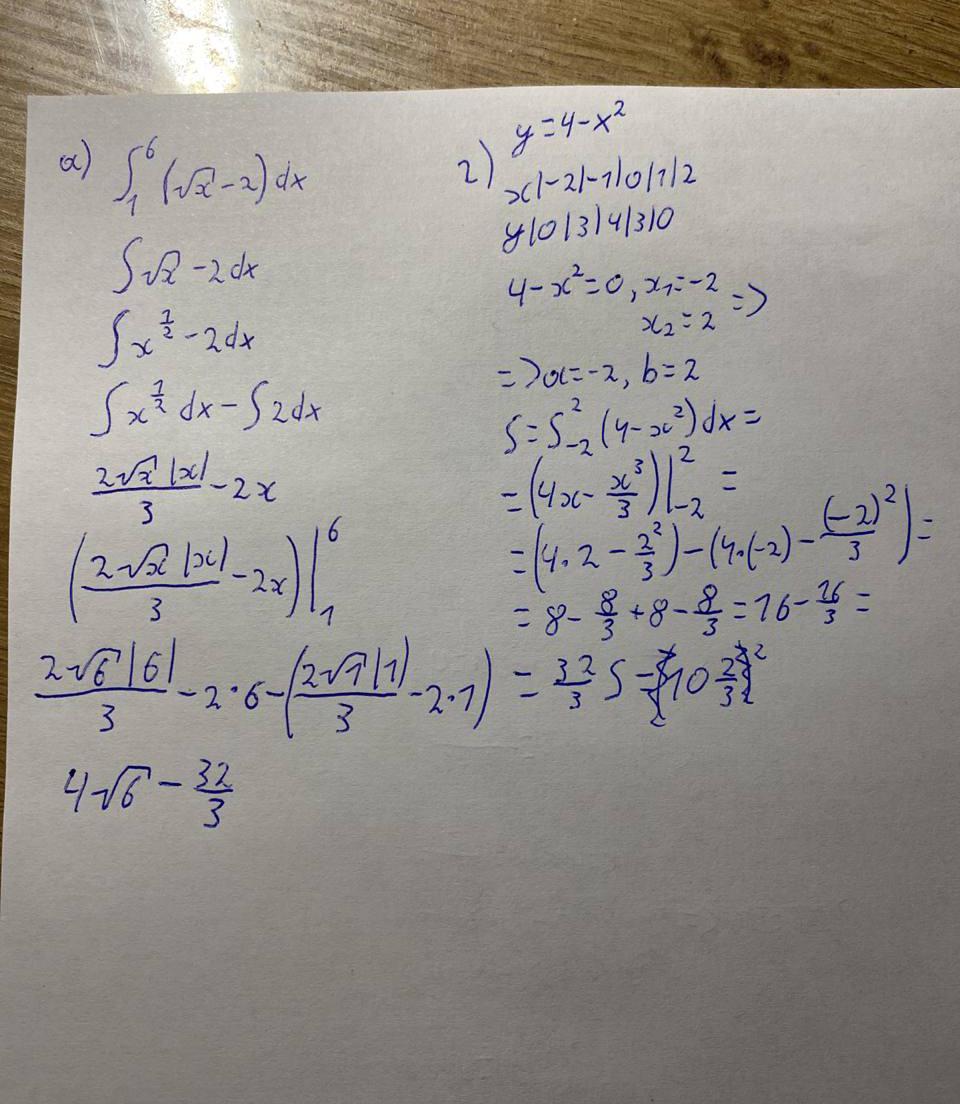 a) ∫₁⁶ (√x - 2) dx
∫√x - 2dx
∫x^(1/2) - 2dx
∫x^(1/2) dx - ∫2dx
2√x |x|/3 - 2x
(2√x |x|/3 - 2x)|₁⁶
2√6 |6|/3 - 2·6 - (2√1 |1|/3 - 2·1)
4√6 - 32/3
2) y = 4-x²
x|-2|-1|0|1|2
y|0|3|4|3|0
4-x²=0, x₁=-2
x₂=2 =>
=> a=-2, b=2
S = ∫₋₂² (4-x²)dx =
= (4x - x³/3)|₋₂² =
= (4·2 - 2²/3) - (4·(-2) - (-2)²/3) =
= 8 - 8/3 + 8 - 8/3 = 16 - 16/3 =
= 32/3 S = 10 2/3 ²